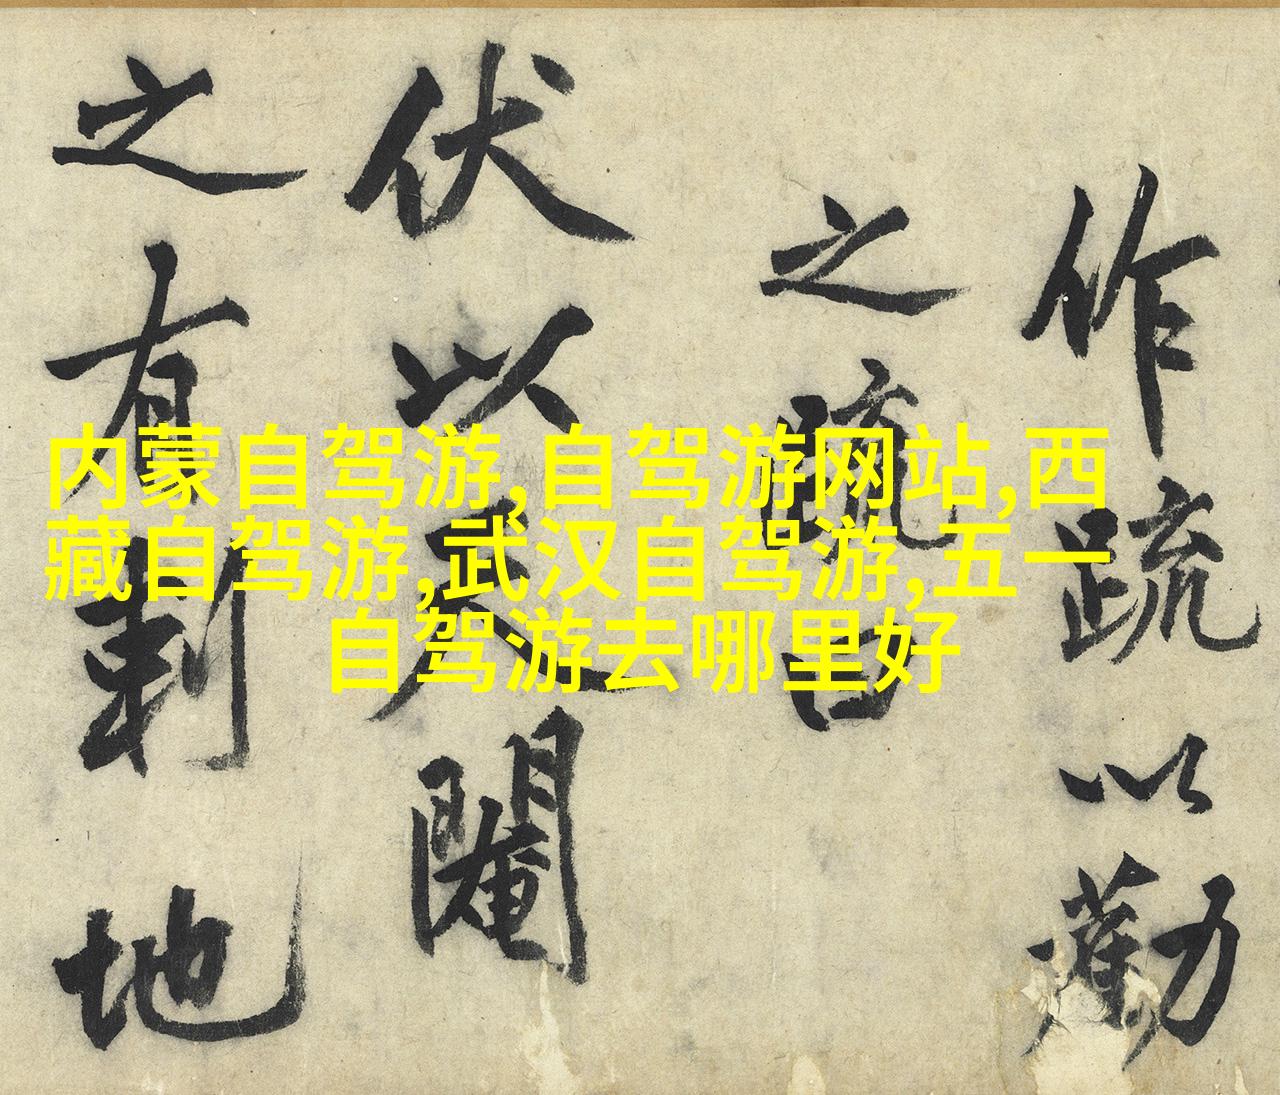 内蒙自驾游,自驾游网站,西
藏自驾游,武汉自驾游,五一
自驾游去哪里好
作疏以勸
之疏曰
伏以天閹
之有剩地